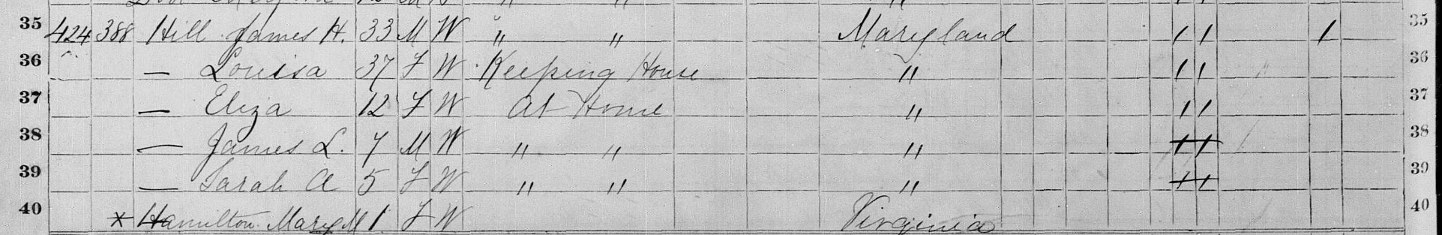 35 424 388 Hill James H. 33 M W " " Maryland 1 1 1 35
36 — Louisa 37 F W Keeping House " 1 1 36
37 — Eliza 12 F W At Home " 1 1 37
38 — James L. 7 M W " " " 1 1 38
39 — Sarah A 5 F W " " " 1 1 39
40 x Hamilton Mary M 1 F W Virginia 40